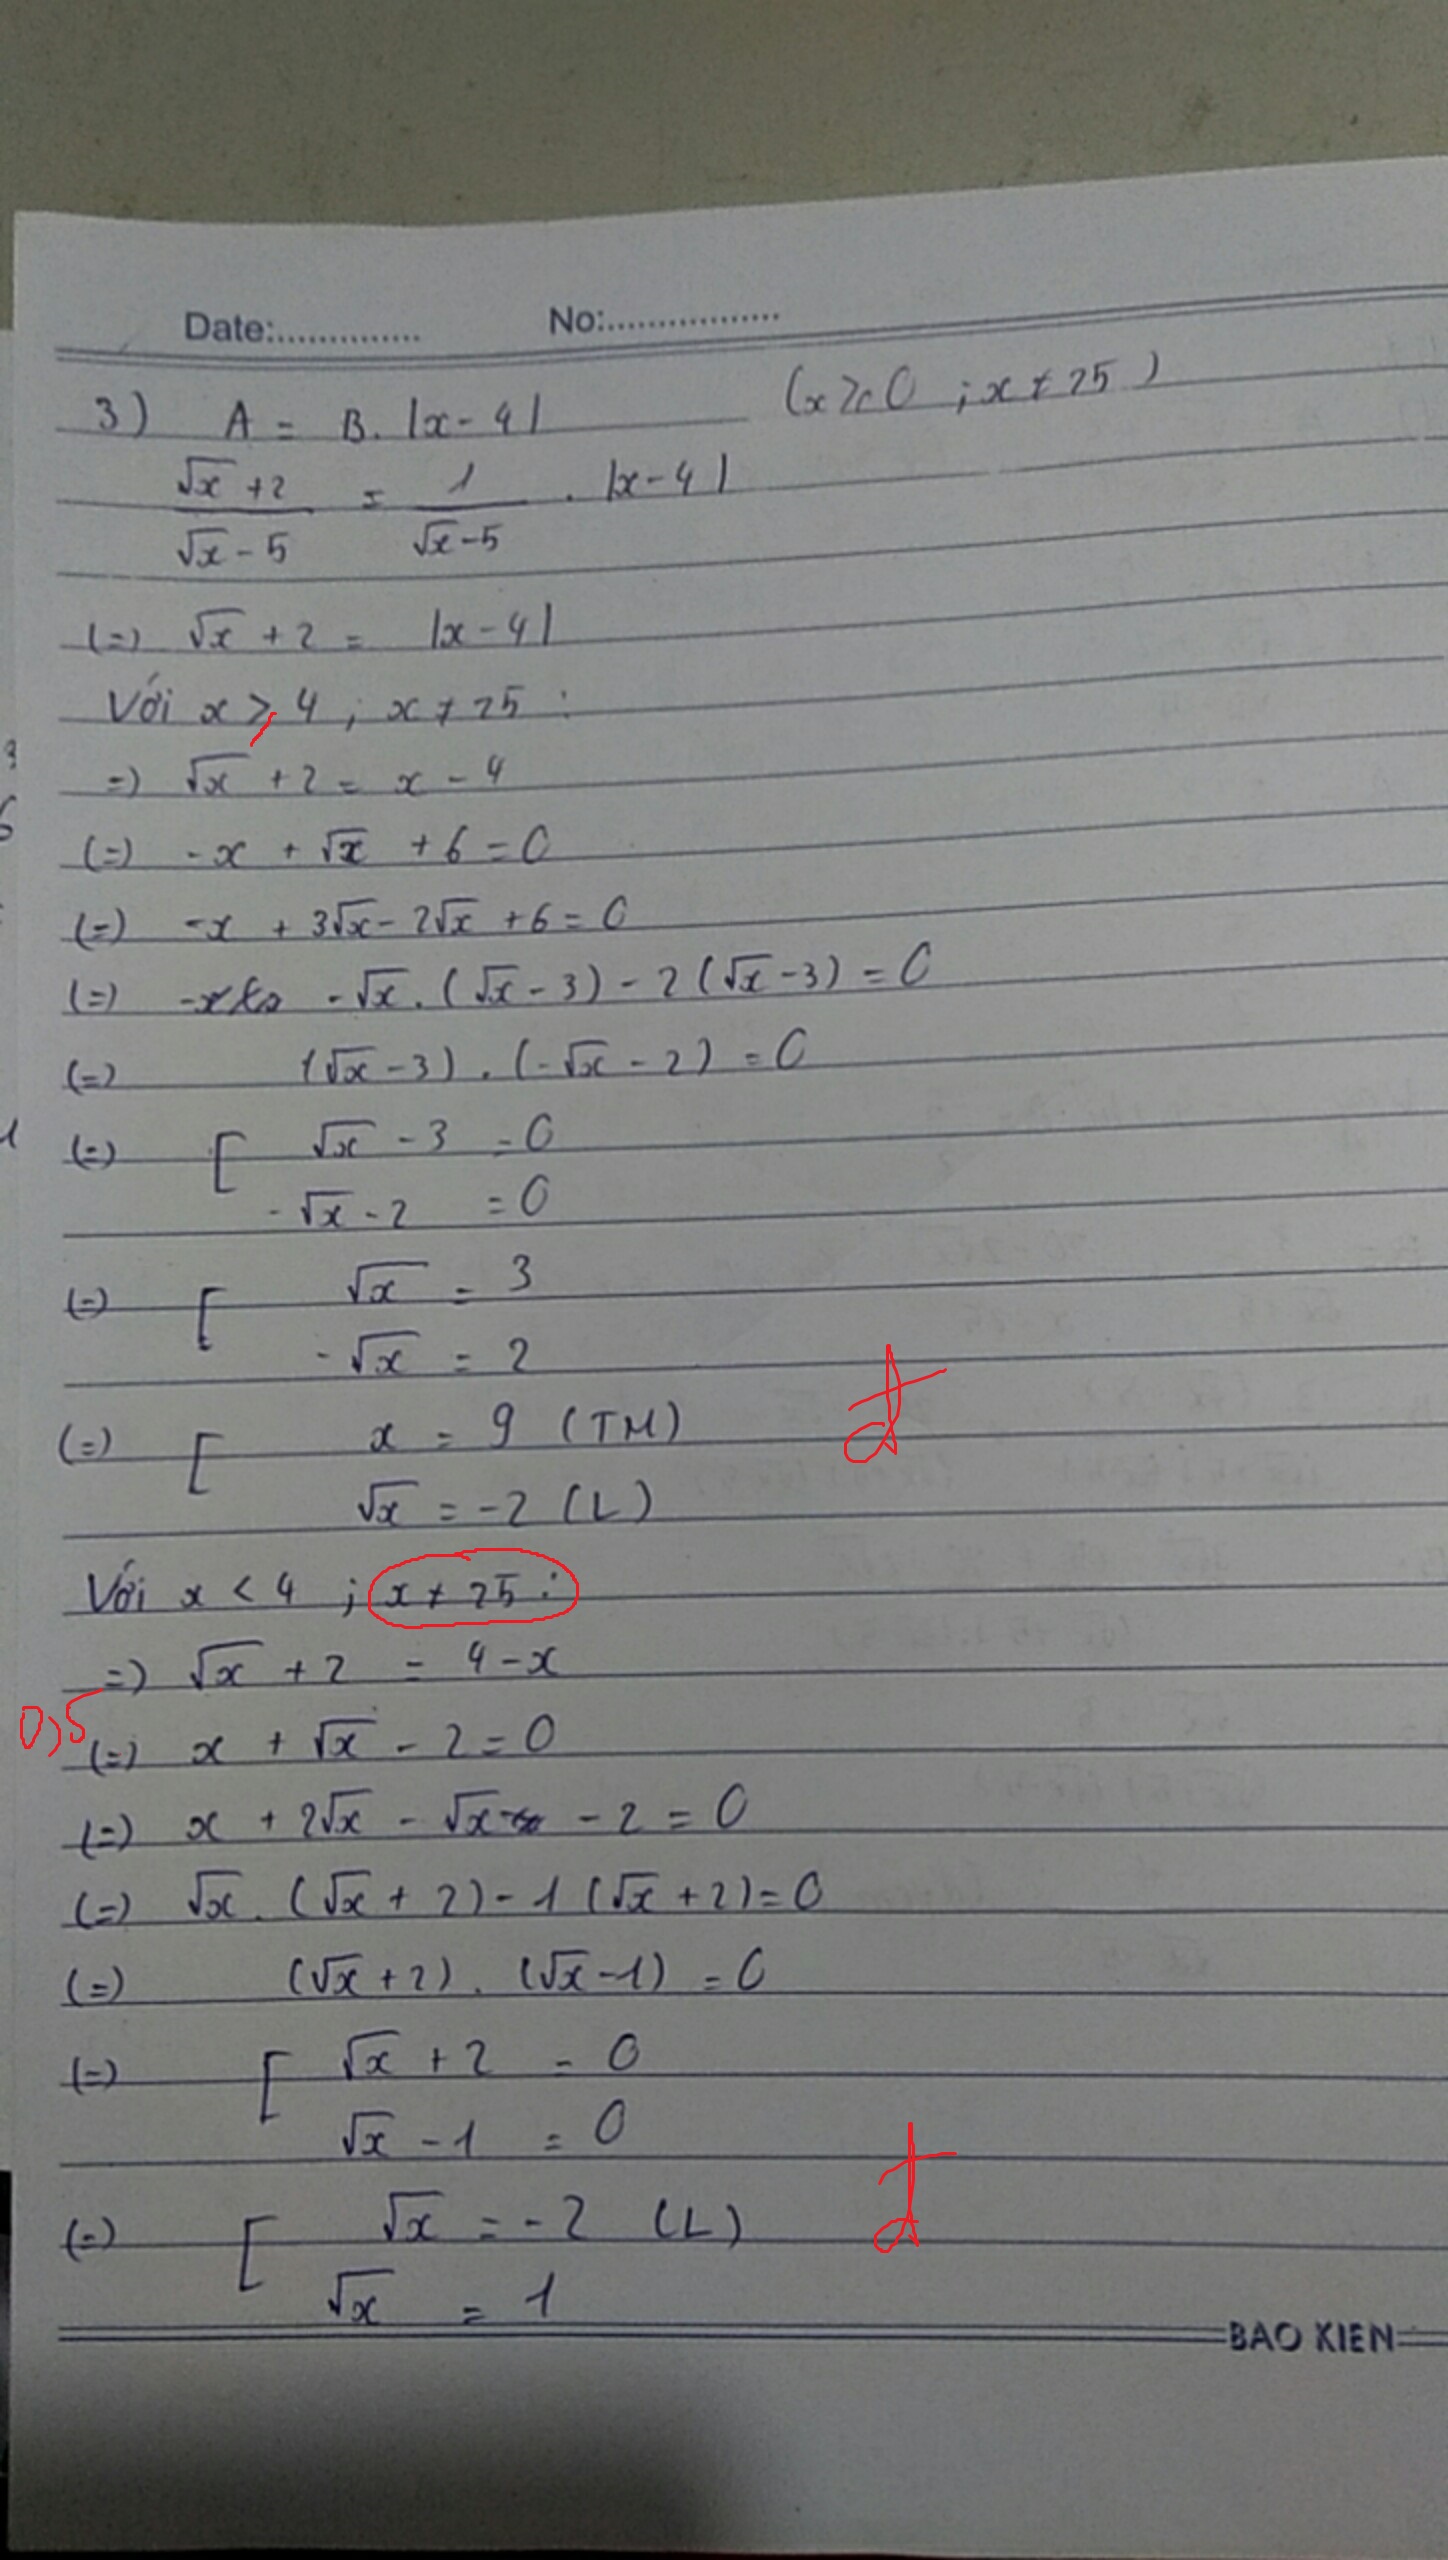 Date:.............. No:.................
3) A = B. |x - 4| (x ≥ 0 ; x ≠ 25)
(√x + 2)/(√x - 5) = 1/(√x - 5) . |x - 4|
(=) √x + 2 = |x - 4|
Với x ≥ 4 ; x ≠ 25 :
=) √x + 2 = x - 4
(=) -x + √x + 6 = 0
(=) -x + 3√x - 2√x + 6 = 0
(=) -√x . (√x - 3) - 2 (√x - 3) = 0
(=) (√x - 3) . (-√x - 2) = 0
(=) [ √x - 3 = 0
-√x - 2 = 0
(=) [ √x = 3
-√x = 2
(=) [ x = 9 (TM) đ
√x = -2 (L)
Với x < 4 ; x ≠ 25 :
=) √x + 2 = 4 - x
0,5 (=) x + √x - 2 = 0
(=) x + 2√x - √x - 2 = 0
(=) √x . (√x + 2) - 1 (√x + 2) = 0
(=) (√x + 2) . (√x - 1) = 0
(=) [ √x + 2 = 0
√x - 1 = 0
(=) [ √x = -2 (L) đ
√x = 1
BAO KIEN